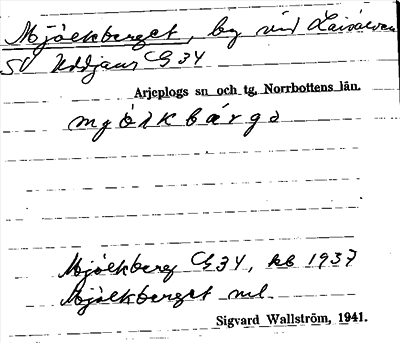 Mjölkberget, by vid Laisälven
SV Uddjaur G 34
Arjeplogs sn och tg, Norrbottens län.
mjölkbärgə
Mjölkberg G 34, kb 1937
Mjölkberget ml.
Sigvard Wallström, 1941.